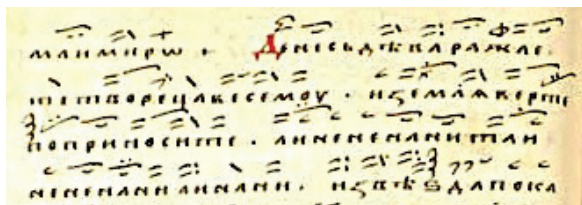 млимирѡ + Денесьдѣваражае
тетворецавесемоу · ицемлѧверте
поприносите · анинененанитаи
нененанианани · извѣздапока